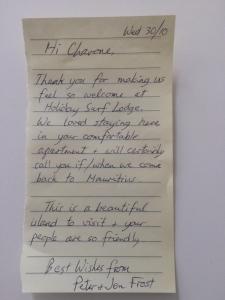 Wed 30/10
Hi Chavone,
Thank you for making us
feel so welcome at
Holiday Surf Lodge.
We loved staying here
in your comfortable
apartment + will certainly
call you if/when we come
back to Mauritius
This is a beautiful
island to visit + your
people are so friendly.
Best Wishes from
Peter + Jen Frost